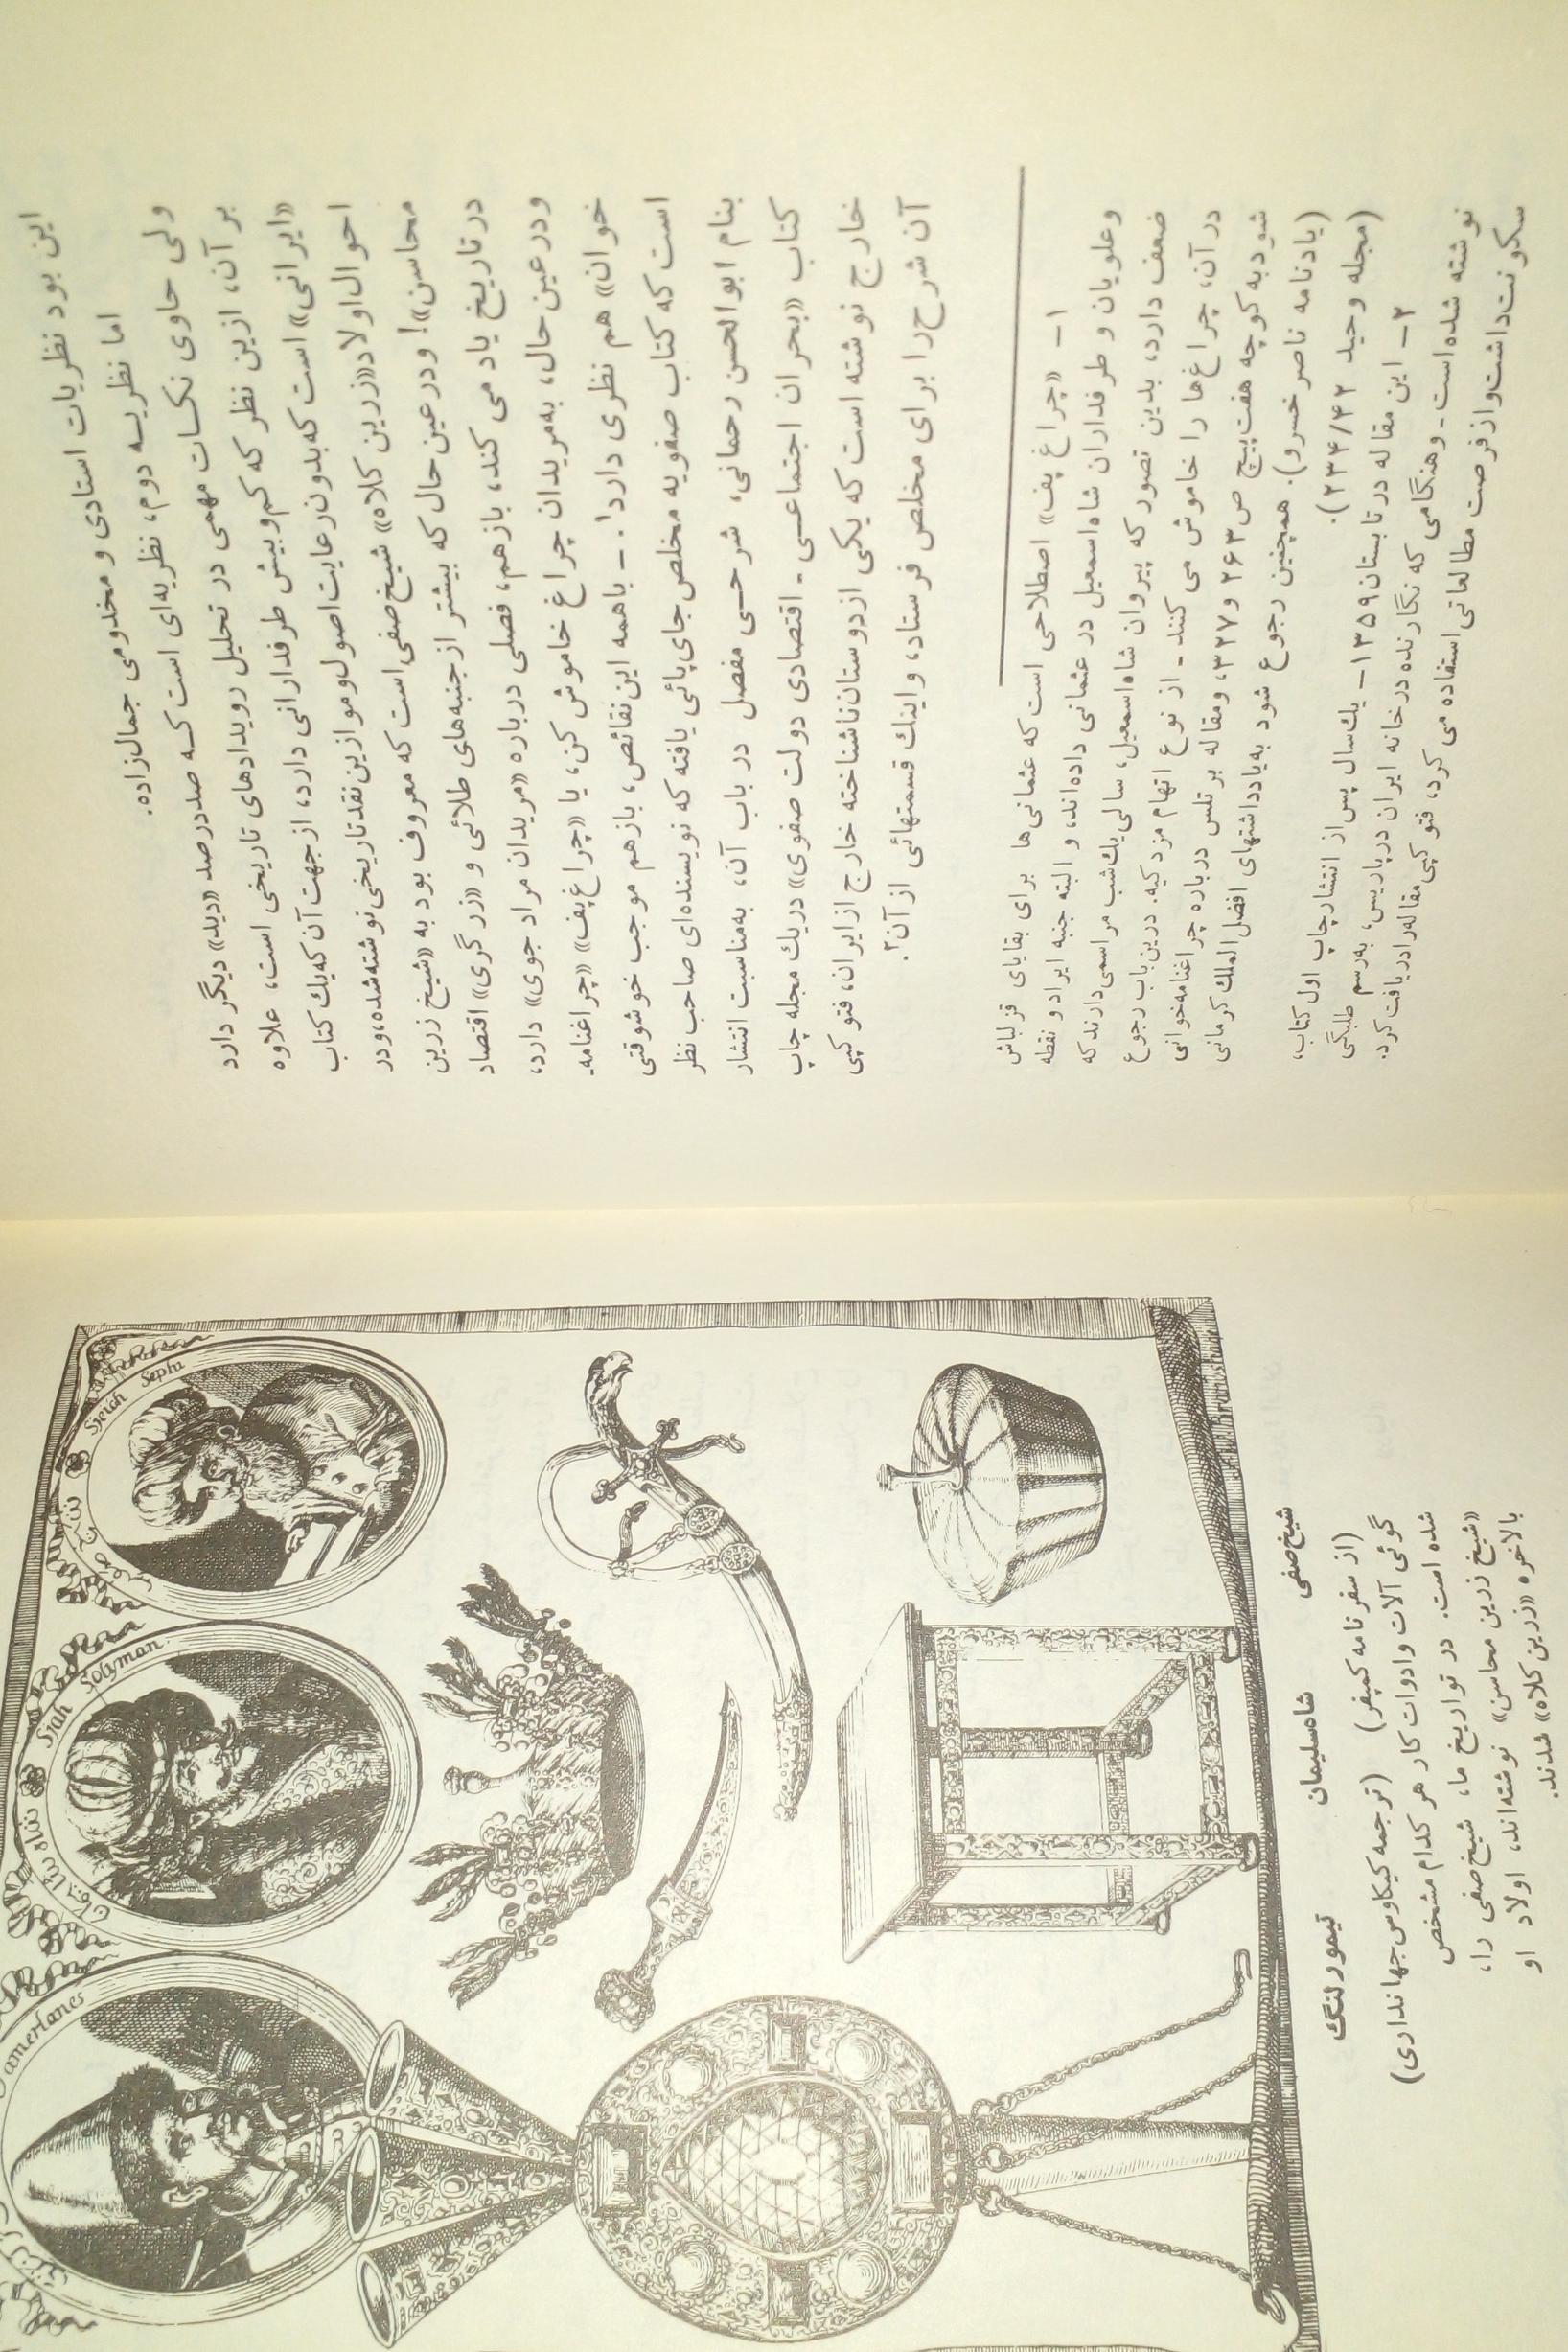 این بود نظریات استادی و مخدومی جمال‌زاده.
اما نظریه دوم، نظریه‌ای است که صددرصد «دید» دیگر دارد
ولی حاوی نکات مهمی در تحلیل رویدادهای تاریخی است، علاوه
بر آن، ازین نظر که کم‌وبیش طرفدارانی دارد، از جهت آن که یك کتاب
«ایرانی» است که بدون رعایت اصول و موازین نقد تاریخی نوشته شده، و در
احوال اولاد «زرین کلاه» شیخ صفی است که معروف بود به «شیخ زرین
محاسن»! و در عین حال که بیشتر از جنبه‌های طلائی و «زرگری» اقتصاد
در تاریخ یاد می کند، بازهم، فصلی درباره «مریدان مراد جوی» دارد،
و در عین حال، به مریدان چراغ خاموش کن، یا «چراغ پف» «چراغنامه-
خوان» هم نظری دارد۱. ـ با همه این نقائص، بازهم موجب خوشوقتی
است که کتاب صفویه مخلص جای پائی یافته که نویسنده‌ای صاحب نظر
بنام ابوالحسن رحمانی، شرحی مفصل در باب آن، به مناسبت انتشار
کتاب «بحران اجتماعی - اقتصادی دولت صفوی» در یك مجله چاپ
خارج نوشته است که یکی از دوستان ناشناخته خارج از ایران، فتوکپی
آن شرح را برای مخلص فرستاد، و اینك قسمتهائی از آن۲.
۱ـ «چراغ پف» اصطلاحی است که عثمانی‌ها برای بقایای قزلباش
وعلویان و طرفداران شاه‌اسمعیل در عثمانی داده‌اند، و البته جنبه ایراد و نقطه
ضعف دارد، بدین تصور که پیروان شاه‌اسمعیل، سالی یك شب مراسمی دارند که
در آن، چراغ‌ها را خاموش می کنند ـ از نوع اتهام مزدکیه. درین باب رجوع
شود به کوچه هفت پیچ ص ۲۶۳ و ۳۲۷، ومقاله برتلس درباره چراغنامه خوانی
(یادنامه ناصرخسرو). همچنین رجوع شود به یادداشتهای افضل‌الملك کرمانی
(مجله وحید ۲۳۴/۴۲).
۲ـ این مقاله در تابستان ۱۳۵۹ـ یك سال پس از انتشار چاپ اول کتاب،
نوشته شده است ـ وهنگامی که نگارنده در خانه ایران در پاریس، به رسم طلبگی
سکونت داشت واز فرصت مطالعاتی استفاده می کرد، فتوکپی مقاله را دریافت کرد.
Sjeich Sephi
شیخ صفی
Sjah Solyman
شاه سلیمان
Tamerlanes
شیخ صفی شاه‌سلیمان تیمور لنگ
(از سفرنامه کمپفر) (ترجمه کیکاوس جهانداری)
گوئی آلات وادوات کار هر کدام مشخص
شده است. در تواریخ ما، شیخ صفی را،
«شیخ زرین محاسن» نوشته‌اند، اولاد او
بالاخره «زرین کلاه» شدند.